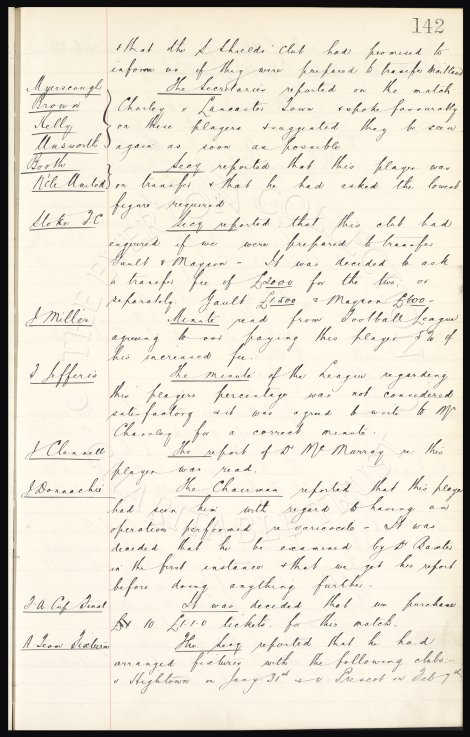 142
& that the S Shields Club had promised to
inform us if they were prepared to transfer Maitland
Myerscough The Secretaries reported on the match
Brown Chorley v Lancaster Town & spoke favourably
Kelly on these players & suggested they be seen
Unsworth again as soon as possible
Booth Secy reported that this player was
N'cle United on transfer & that he had asked the lowest
figure required.
Stoke F.C Secy reported that this club had
enquired if we were prepared to transfer
Gault & Mayson - It was decided to ask
a transfer fee of £2000 for the two, or
separately Gault £1500 & Mayson £600 -
J Miller Minute read from Football League
agreeing to our paying this player of
his increased fee.
F Jefferis The minute of the League regarding
this players percentage was not considered
satisfactory & it was agreed to write to Mr
Charnley for a correct minute.
J Clennell The report of Dr McMurray re this
player was read.
J Donnachie The Chairman reported that this player
had seen him with regard to having an
operation performed re varicocele - It was
decided that he be examined by Dr Baxter
in the first instance & that we get his report
before doing anything further.
F.A Cup Final It was decided that we purchase
10 £1.1.0 tickets for this match.
A Team Fixtures The Secy reported that he had
arranged fixtures with the following clubs:-
v Hightown on Jany 31st & v Prescot on Feb 7th